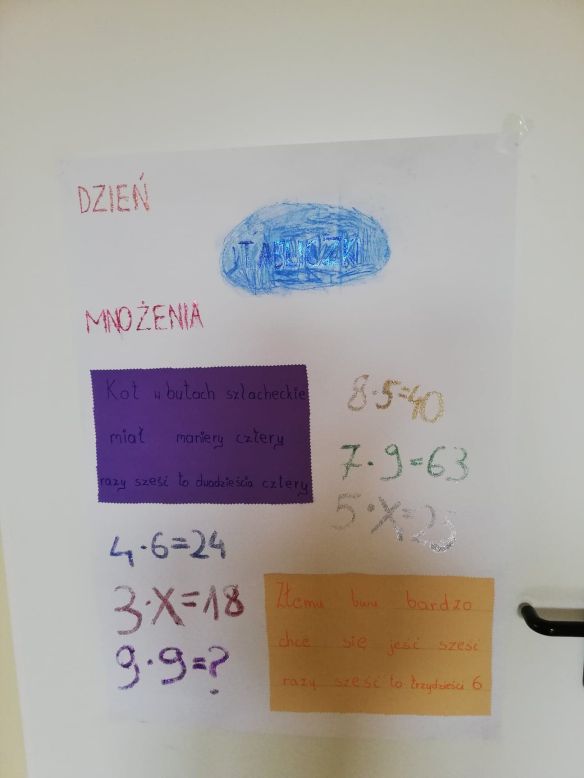 DZIEŃ
TABLICZKI
MNOŻENIA
Kot w butach szlacheckie
miał maniery cztery
razy sześć to dwadzieścia cztery
8·5=40
7·9=63
5·X=25
4·6=24
3·X=18
9·9=?
Złemu bardzo
chce się jeść sześć
razy sześć to trzydzieści 6